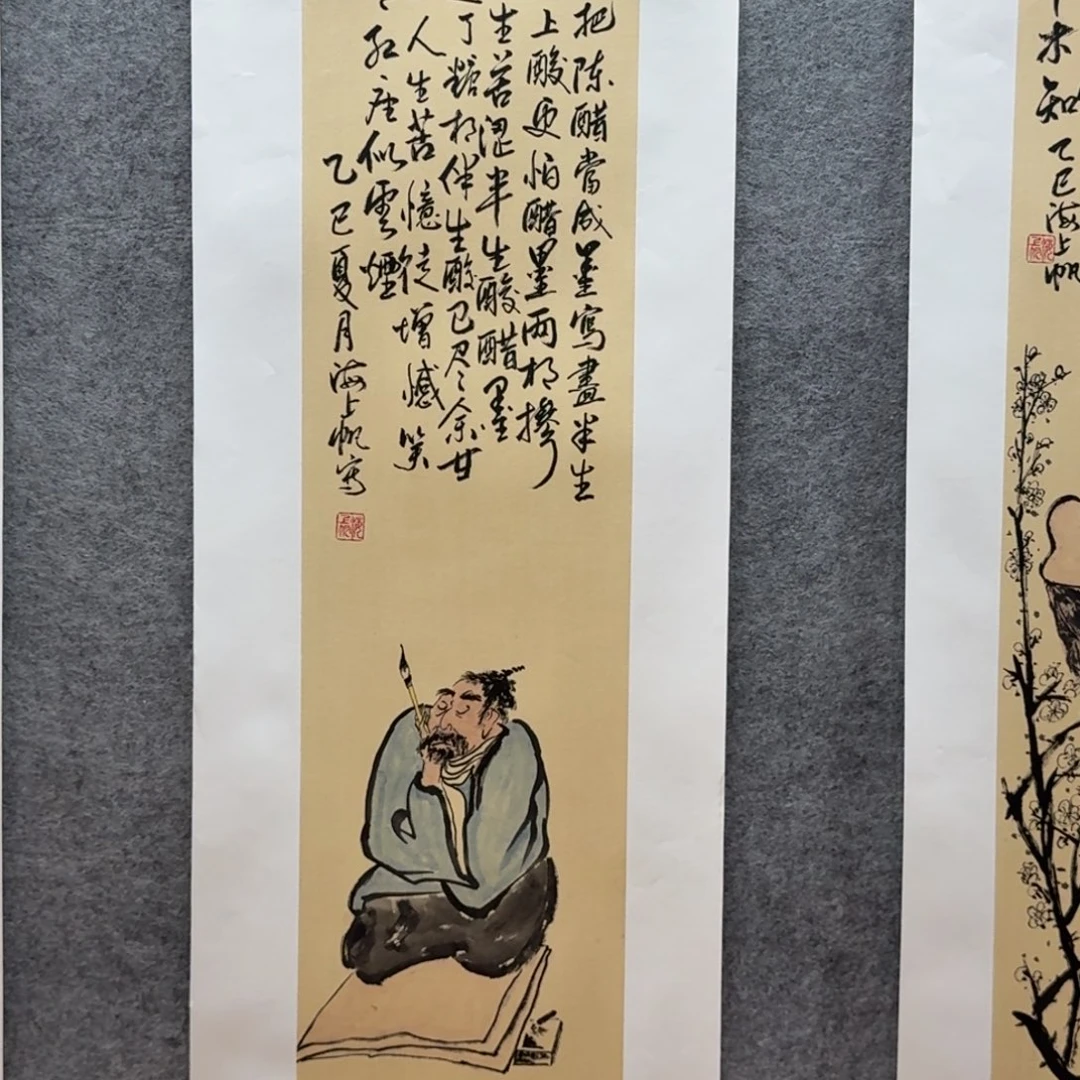 把陈醋當成墨寫盡半生
上酸更怕醋墨兩相摻
生苦澀半生酸醋墨
丁點相伴生酸已尽余甘
人生苦憶徒增憾笑
红尘似雲煙
乙巳夏月海上帆寫
木知乙巳海上帆